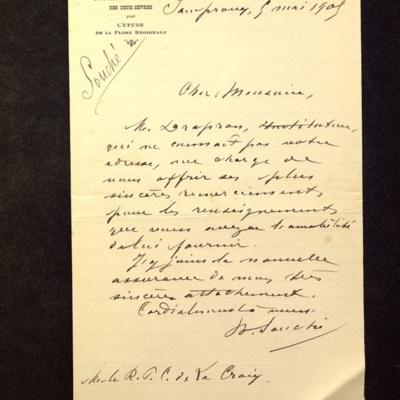 DES DEUX-SÈVRES
pour
L'ÉTUDE
DE LA FLORE RÉGIONALE
Pamproux, 5 mai 1905
Souché
Cher Monsieur,
M. Drapron, instituteur,
qui ne connaît pas votre
adresse, me charge de
vous offrir ses plus
sincères remerciements
pour les renseignements
que vous avez eu l'amabilité
de lui fournir.
J'y joins la nouvelle
assurance de mon très
sincère attachement.
Cordialement à vous.
B. Souché
M. le R. P. C. de La Croix.